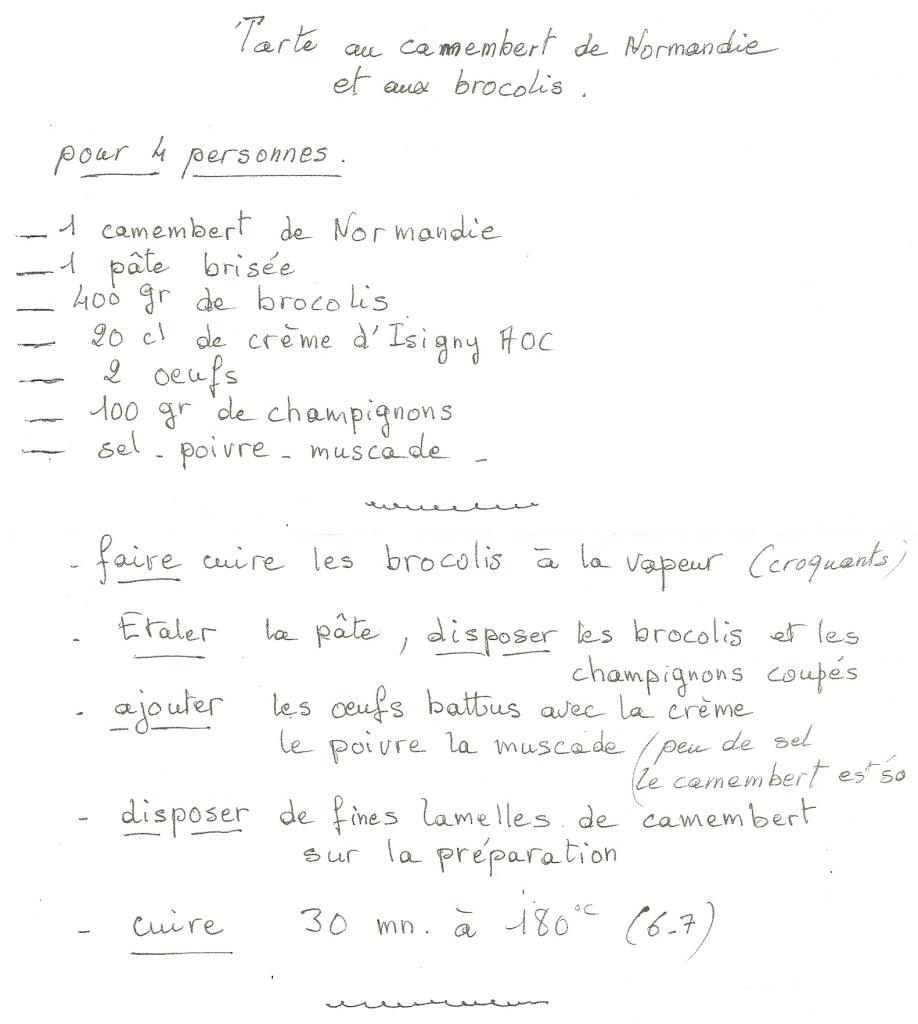 Tarte au camembert de Normandie
et aux brocolis.
pour 4 personnes.
— 1 camembert de Normandie
— 1 pâte brisée
— 400 gr de brocolis
— 20 cl de crème d'Isigny AOC
— 2 oeufs
— 100 gr de champignons
— sel - poivre - muscade -
- faire cuire les brocolis à la vapeur (croquants)
- Etaler la pâte, disposer les brocolis et les
champignons coupés
- ajouter les œufs battus avec la crème
le poivre la muscade (peu de sel
le camembert est
- disposer de fines lamelles de camembert
sur la préparation
- cuire 30 mn. à 180°C (6-7)